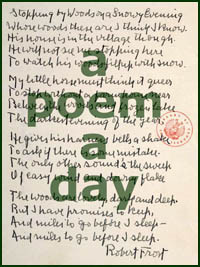 Stopping by Woods on a Snowy Evening
Whose woods these are I think I know.
His house is in the village though.
He will not see me stopping here
To watch his woods fill up with snow.
My little horse must think it queer
To stop
Between
The darkest evening of the year.
He gives his harness bells a shake
To ask if there is some mistake.
The only other sound's the sweep
Of easy wind and downy flake.
The woods are lovely, dark and deep.
But I have promises to keep,
And miles to go before I sleep—
And miles to go before I sleep.
Robert Frost
a
poem
a
day